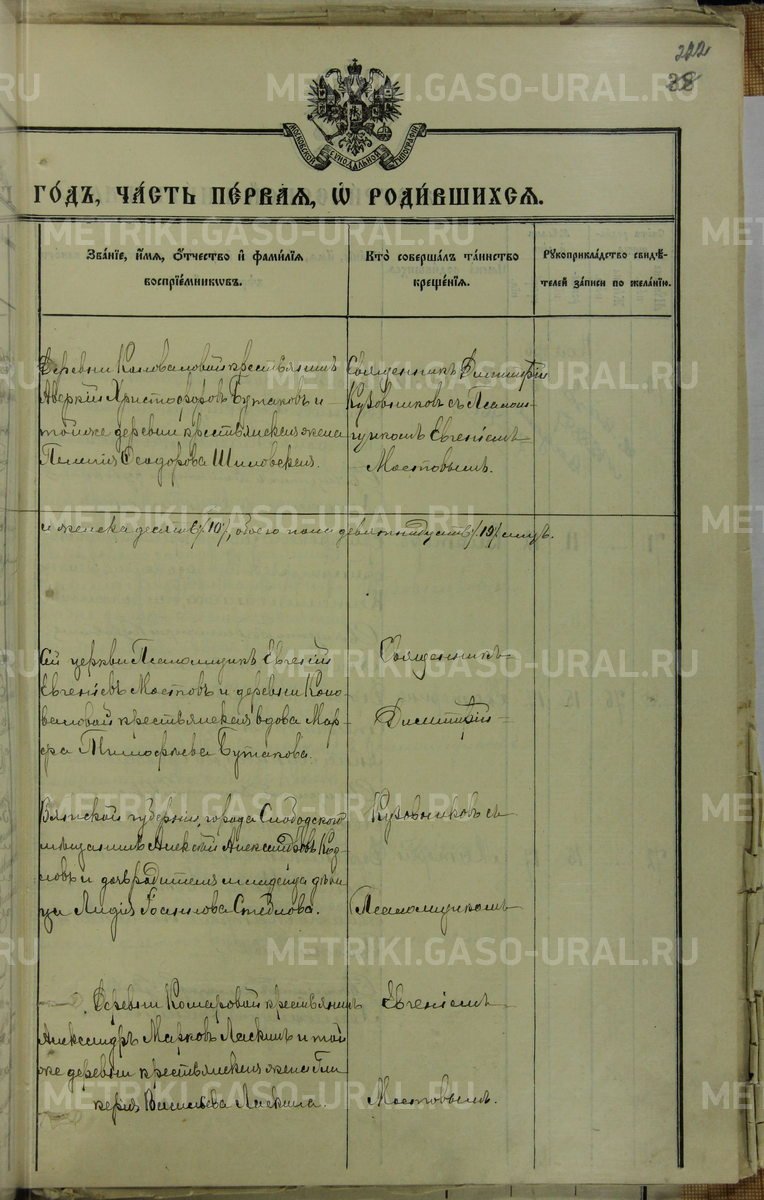 222
38
МОСКОВСКОЙ СѴНОДАЛЬНОЙ ТИПОГРАФІИ
ГО́ДЪ, ЧА́СТЬ ПЕ́РВАѦ, Ѡ҆ РОДИ́ВШИХСѦ.
Зва́нїе, и҆́мѧ, ѻ҆́тчество и҆ фами́лїѧ
воспрїе́мникѡвъ.
Кто̀ соверша́лъ та́инство
креще́нїѧ.
Рꙋкоприкла́дство свидѣ́-
телей за́писи по жела́нїю.
Деревни Коноваловой крестьянинъ
Аверкій Христофоровъ Бутаковъ и
той же деревни крестьянская жена
Пелагія Ѳеодорова Шиловская.
Священникъ Димитрій
Кузовниковъ съ Псаломщикомъ Евгеніемъ
Мостовымъ.
и женска десять /10/, обоего пола девятнадцать /19/ лицъ.
Сей церкви Псаломщикъ Евгеній
Евгеніевъ Мостовъ и деревни Коно-
валовой крестьянская вдова Мар-
фа Тимофеева Бутакова.
Священникъ
Димитрій
Вятской губерніи, города Слободского
мѣщанинъ Алексѣй Александровъ
и дочь родителя младенца дѣви-
ца Лидія Іоаннова
Кузовниковъ съ
Псаломщикомъ
Деревни Комаровой крестьянинъ
Александръ Марковъ Ласкинъ и той
же деревни крестьянская жена Гли-
керія Васильева Ласкина.
Евгеніемъ
Мостовымъ.
METRIKI.GASO-URAL.RU